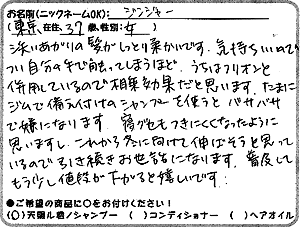 お名前(ニックネームOK): ジンジャー
(東京)在住、(37)歳、性別:(女)
洗いあがりの髪がしっとり柔かいです。気持ちいいので
つい自分の手で触ってしまうほど。うちはフリオンと
併用しているので相乗効果だと思います。たまに
ジムで備え付けのシャンプーを使うとバサバサ
で嫌になります。寝グセもつきにくくなったように
思いますし、これから冬に向けて伸ばそうと思って
いるので引き続きお世話になります。普及して
もう少し値段が下がると嬉しいです。
●ご希望の商品に○をお付けください!
(○)天陽ル君ノシャンプー ( )コンディショナー ( )ヘアオイル